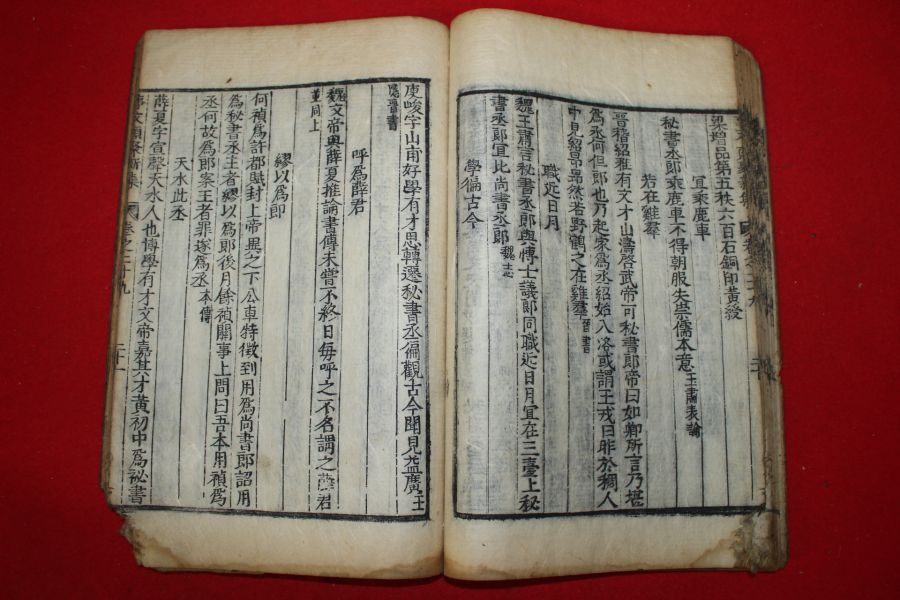 梁增品第五秩六百石銅印黃綬
宜乘鹿車
秘書丞郎乘鹿車不得朝服失崇儒本意王肅表論
若在雞羣
晉嵇紹雅有文才山濤啓武帝可秘書郎帝曰如卿所言乃堪
爲丞何但郎也乃起家爲丞紹始入洛或謂王戎曰昨於稠人
中見紹昂昂然若野鶴之在雞羣晉書
職近日月
魏王肅言秘書丞郎與博士議郎同職近日月宜在三臺上秘
書丞郎宜比尚書丞郎魏志
學徧古今
庾峻字山甫好學有才思轉遷秘書丞徧觀古今聞見益廣王
隱晉書
呼爲薛君
魏文帝與薛夏推論書傳未嘗不終日每呼之不名謂之薛君
董同上
繆以爲郎
何禎爲許都賦封上帝異之下公車特徵到用爲尚書郎詔用
爲秘書丞主者繆以爲郎後月餘禎關事上問曰吾本用禎爲
丞何故爲郎案王者罪遂爲丞本傳
天水此丞
薛夏字宣聲天水人也博學有才文帝嘉其才黃初中爲祕書
卷之二十九